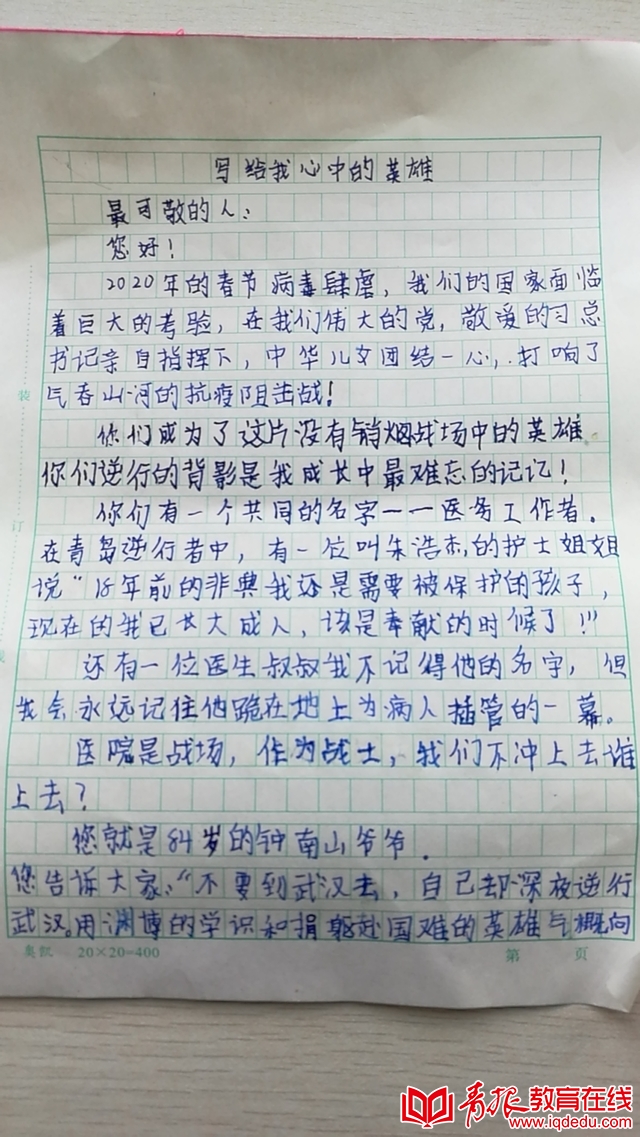 写给我心中的英雄
最可敬的人：
您好！
2020年的春节病毒肆虐，我们的国家面临
着巨大的考验，在我们伟大的党，敬爱的习总
书记亲自指挥下，中华儿女团结一心，打响了
气吞山河的抗疫阻击战！
你们成为了这片没有销烟战场中的英雄
你们逆行的背影是我成长中最难忘的记忆！
你们有一个共同的名字——医务工作者．
在青岛逆行者中，有一位叫朱浩杰的护士姐姐
说“18年前的非典我还是需要被保护的孩子，
现在的我已长大成人，该是奉献的时候了！”
还有一位医生叔叔我不记得他的名字，但
我会永远记住他跪在地上为病人插管的一幕。
医院是战场，作为战士，我们不冲上去谁
上去？
您就是84岁的钟南山爷爷．
您告诉大家：“不要到武汉去，自己却深夜逆行
武汉。用渊博的学识和捐躯赴国难的英雄气概向
装
订
线
奥凯 20×20=400 第 页
青报教育在线
www.iqdedu.com